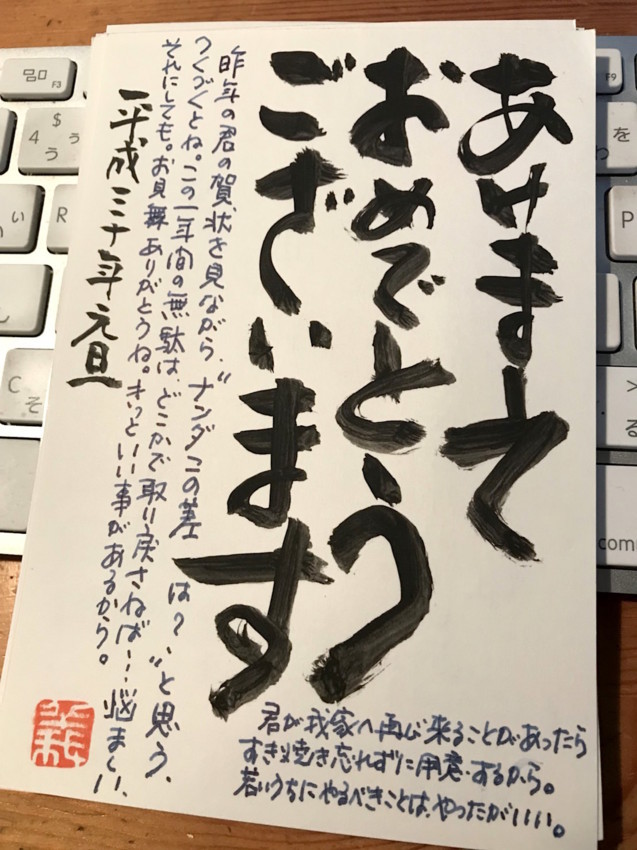 あけまして
おめでとう
ございます
昨年の君の賀状を見ながら、〝ナンダコの差は?、〟と思う、
つくづくとね。この一年間の無駄は、どこかで取り戻さねば…悩ましい、
それにしても。お見舞ありがとうね。きっといい事があるから。
平成三十年元旦
君が我家へ再び来ることがあったら
すき焼き忘れずに用意するから。
若いうちにやるべきことは、やったがいい。
F3
$
4
う
R
C
そ
F9
を
P
>
る
comm